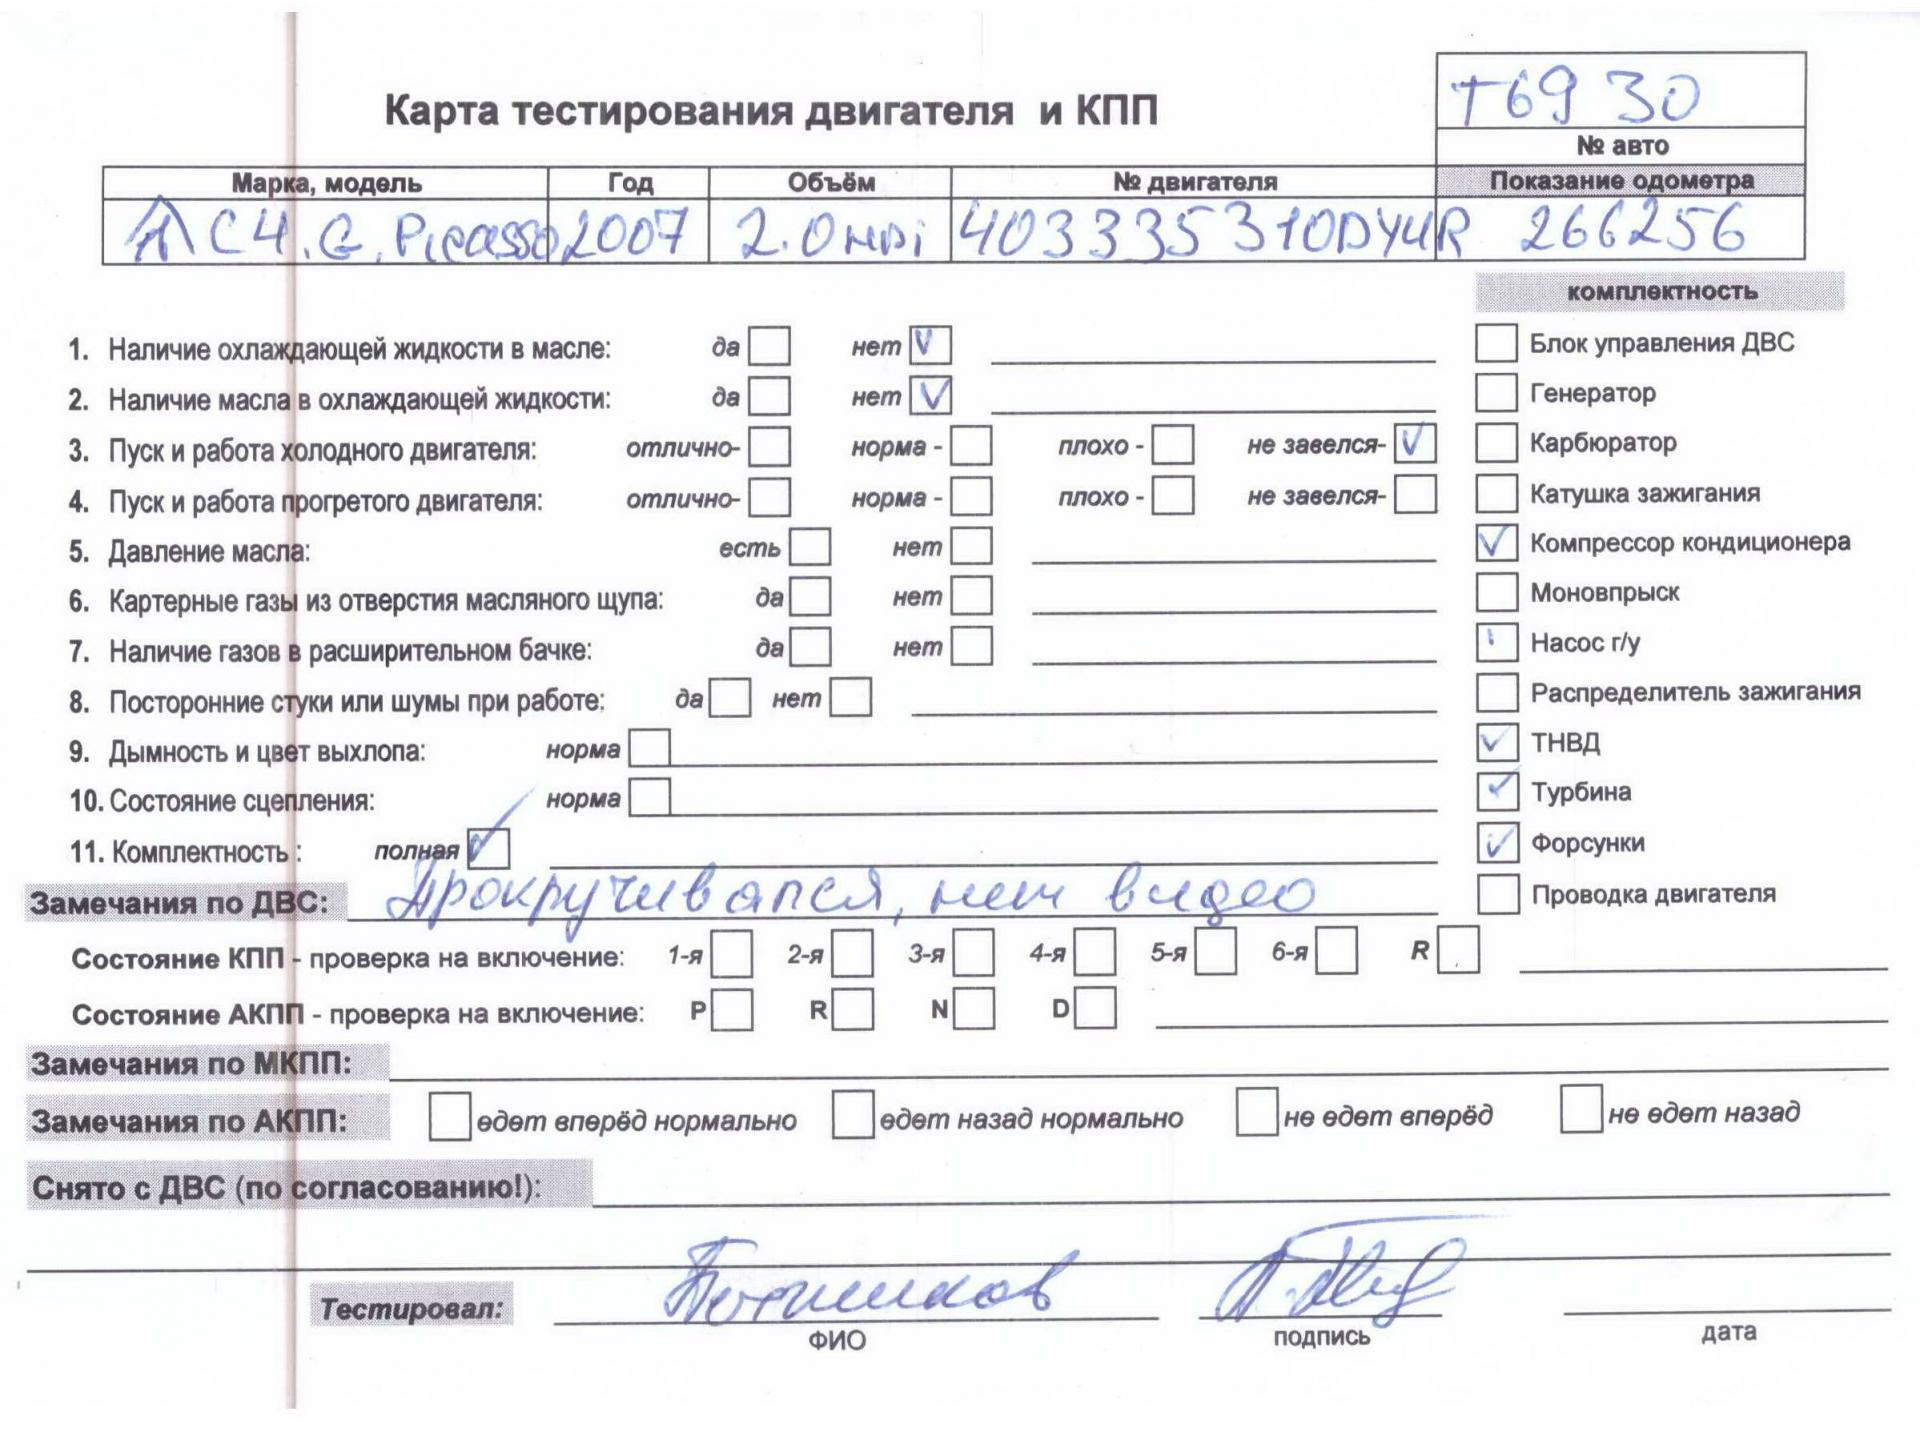 Т6930
Карта тестирования двигателя и КПП
№ авто
Марка, модель Год Объём № двигателя Показание одометра
C4.G.Picasso 2007 2.0 HDi 403335310DYUR 266256
комплектность
1. Наличие охлаждающей жидкости в масле: да нет V
2. Наличие масла в охлаждающей жидкости: да нет V
3. Пуск и работа холодного двигателя: отлично- норма - плохо - не завелся- V
4. Пуск и работа прогретого двигателя: отлично- норма - плохо - не завелся-
5. Давление масла: есть нет
6. Картерные газы из отверстия масляного щупа: да нет
7. Наличие газов в расширительном бачке: да нет
8. Посторонние стуки или шумы при работе: да нет
9. Дымность и цвет выхлопа: норма
10. Состояние сцепления: норма
11. Комплектность : полная V
Блок управления ДВС
Генератор
Карбюратор
Катушка зажигания
V Компрессор кондиционера
Моновпрыск
Насос г/у
Распределитель зажигания
V ТНВД
V Турбина
V Форсунки
Проводка двигателя
Замечания по ДВС: Прокручивался, нет видео
Состояние КПП - проверка на включение: 1-я 2-я 3-я 4-я 5-я 6-я R
Состояние АКПП - проверка на включение: P R N D
Замечания по МКПП:
Замечания по АКПП: едет вперёд нормально едет назад нормально не едет вперёд не едет назад
Снято с ДВС (по согласованию!):
Тестировал:
ФИО подпись дата